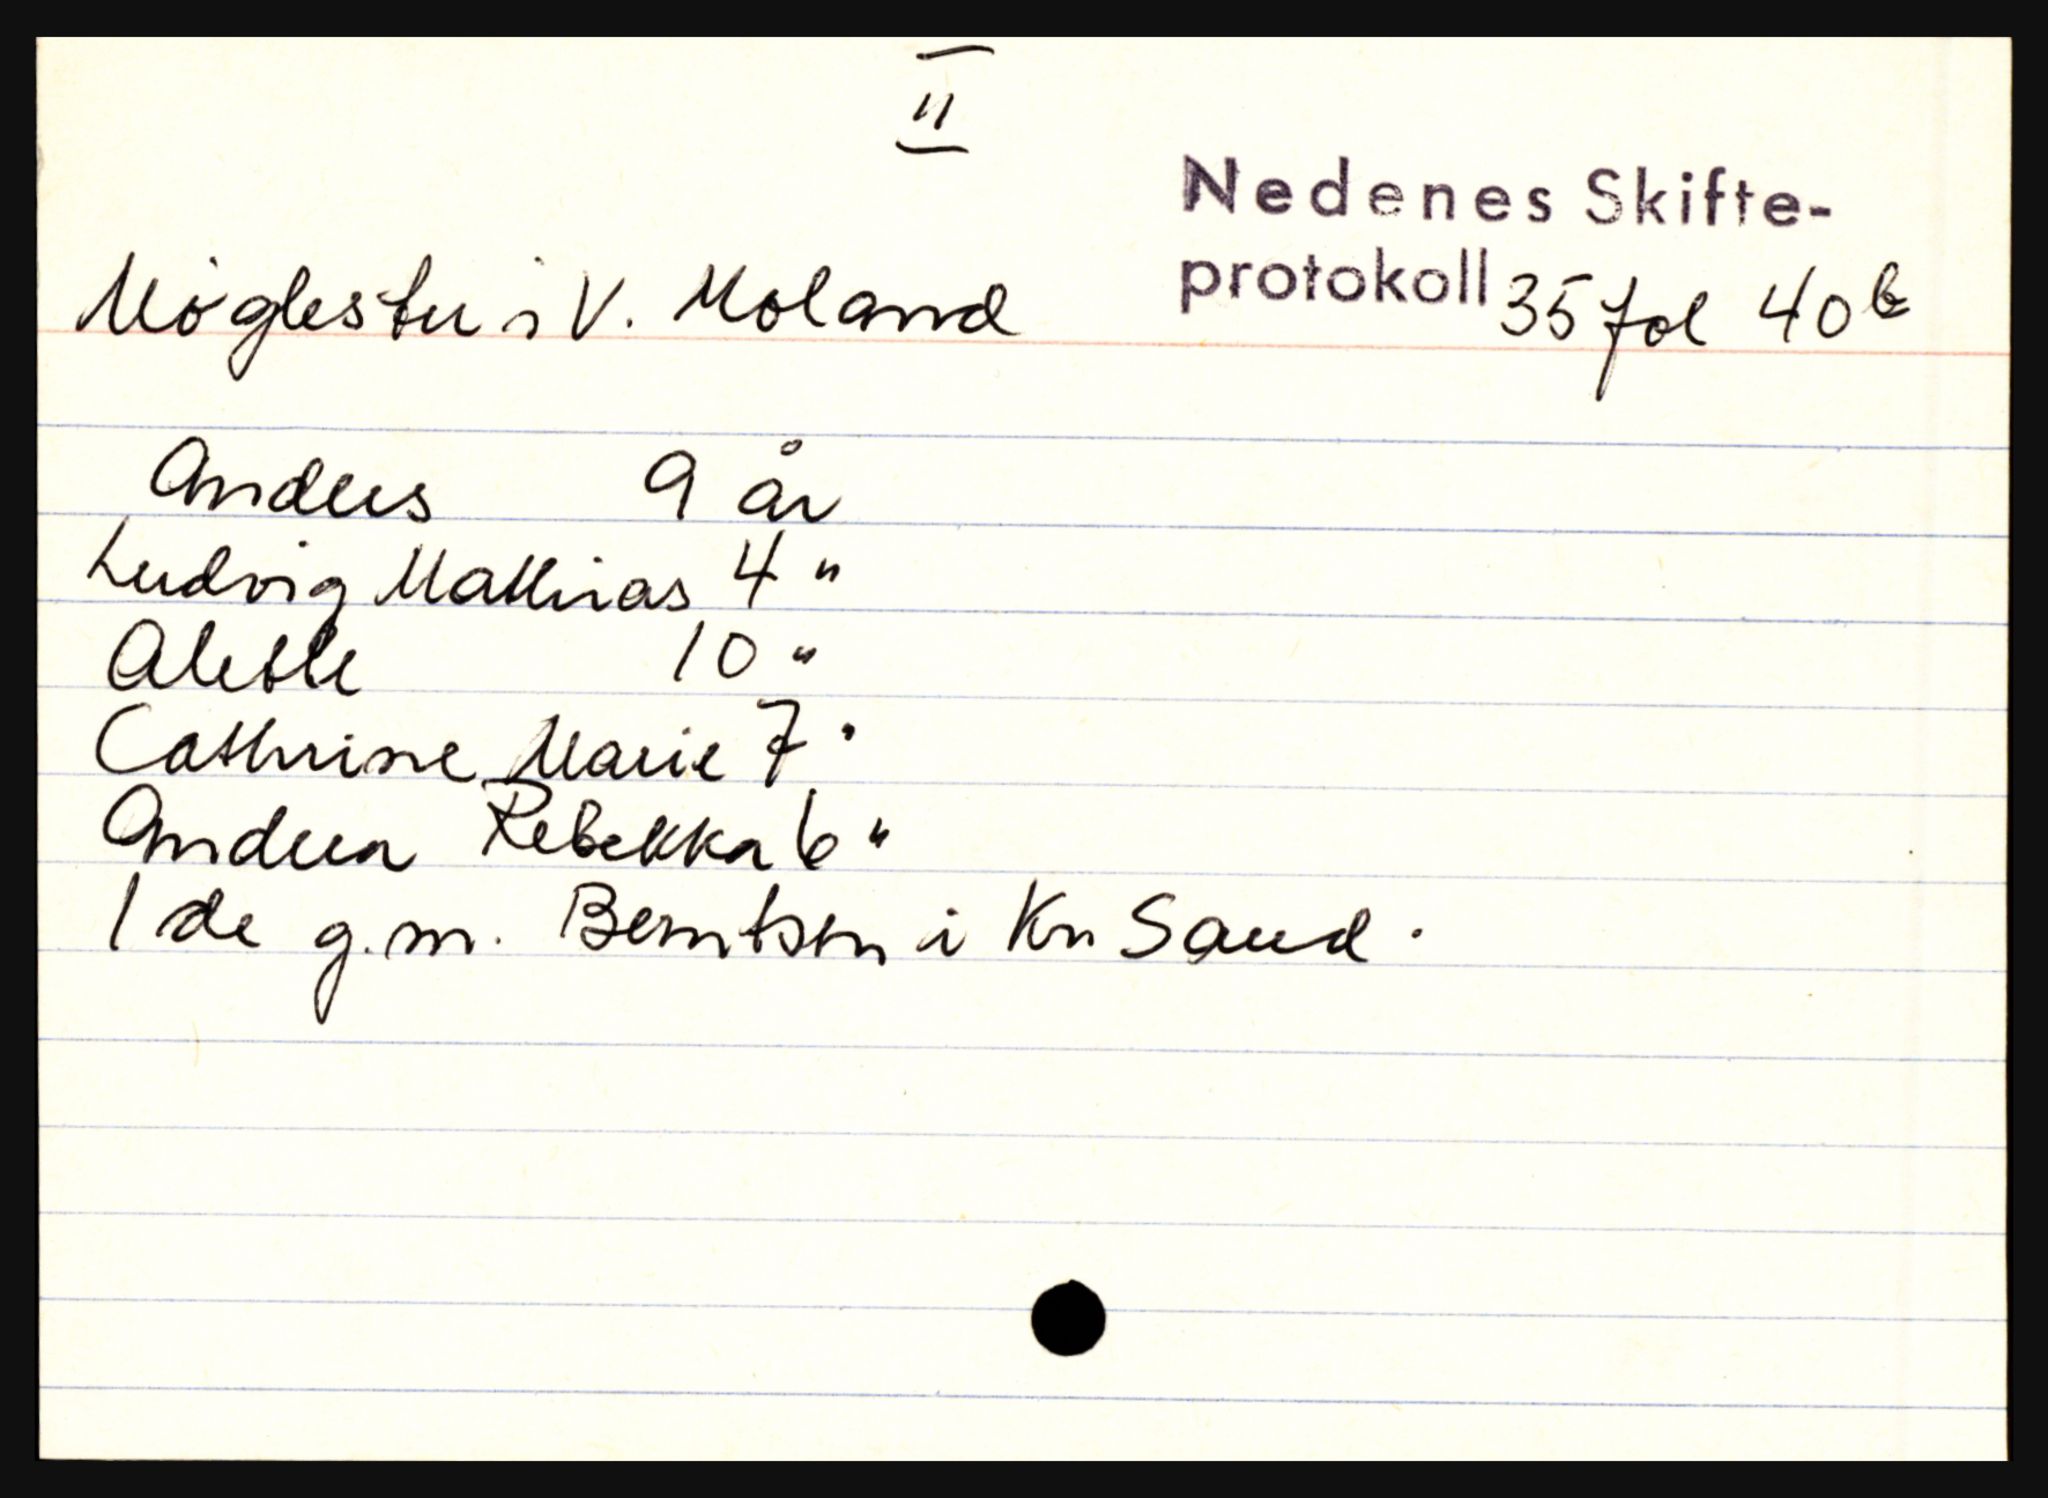 II
Nedenes Skifte-
protokoll 35 fol 40b
Møglestu i V. Moland
Anders 9 år
Ludvig Mathias 4 "
Alette 10 "
Cathrine Marie 7 "
Andrea Rebekka 6 "
Ide g.m. Berntsen i Kr Sand.